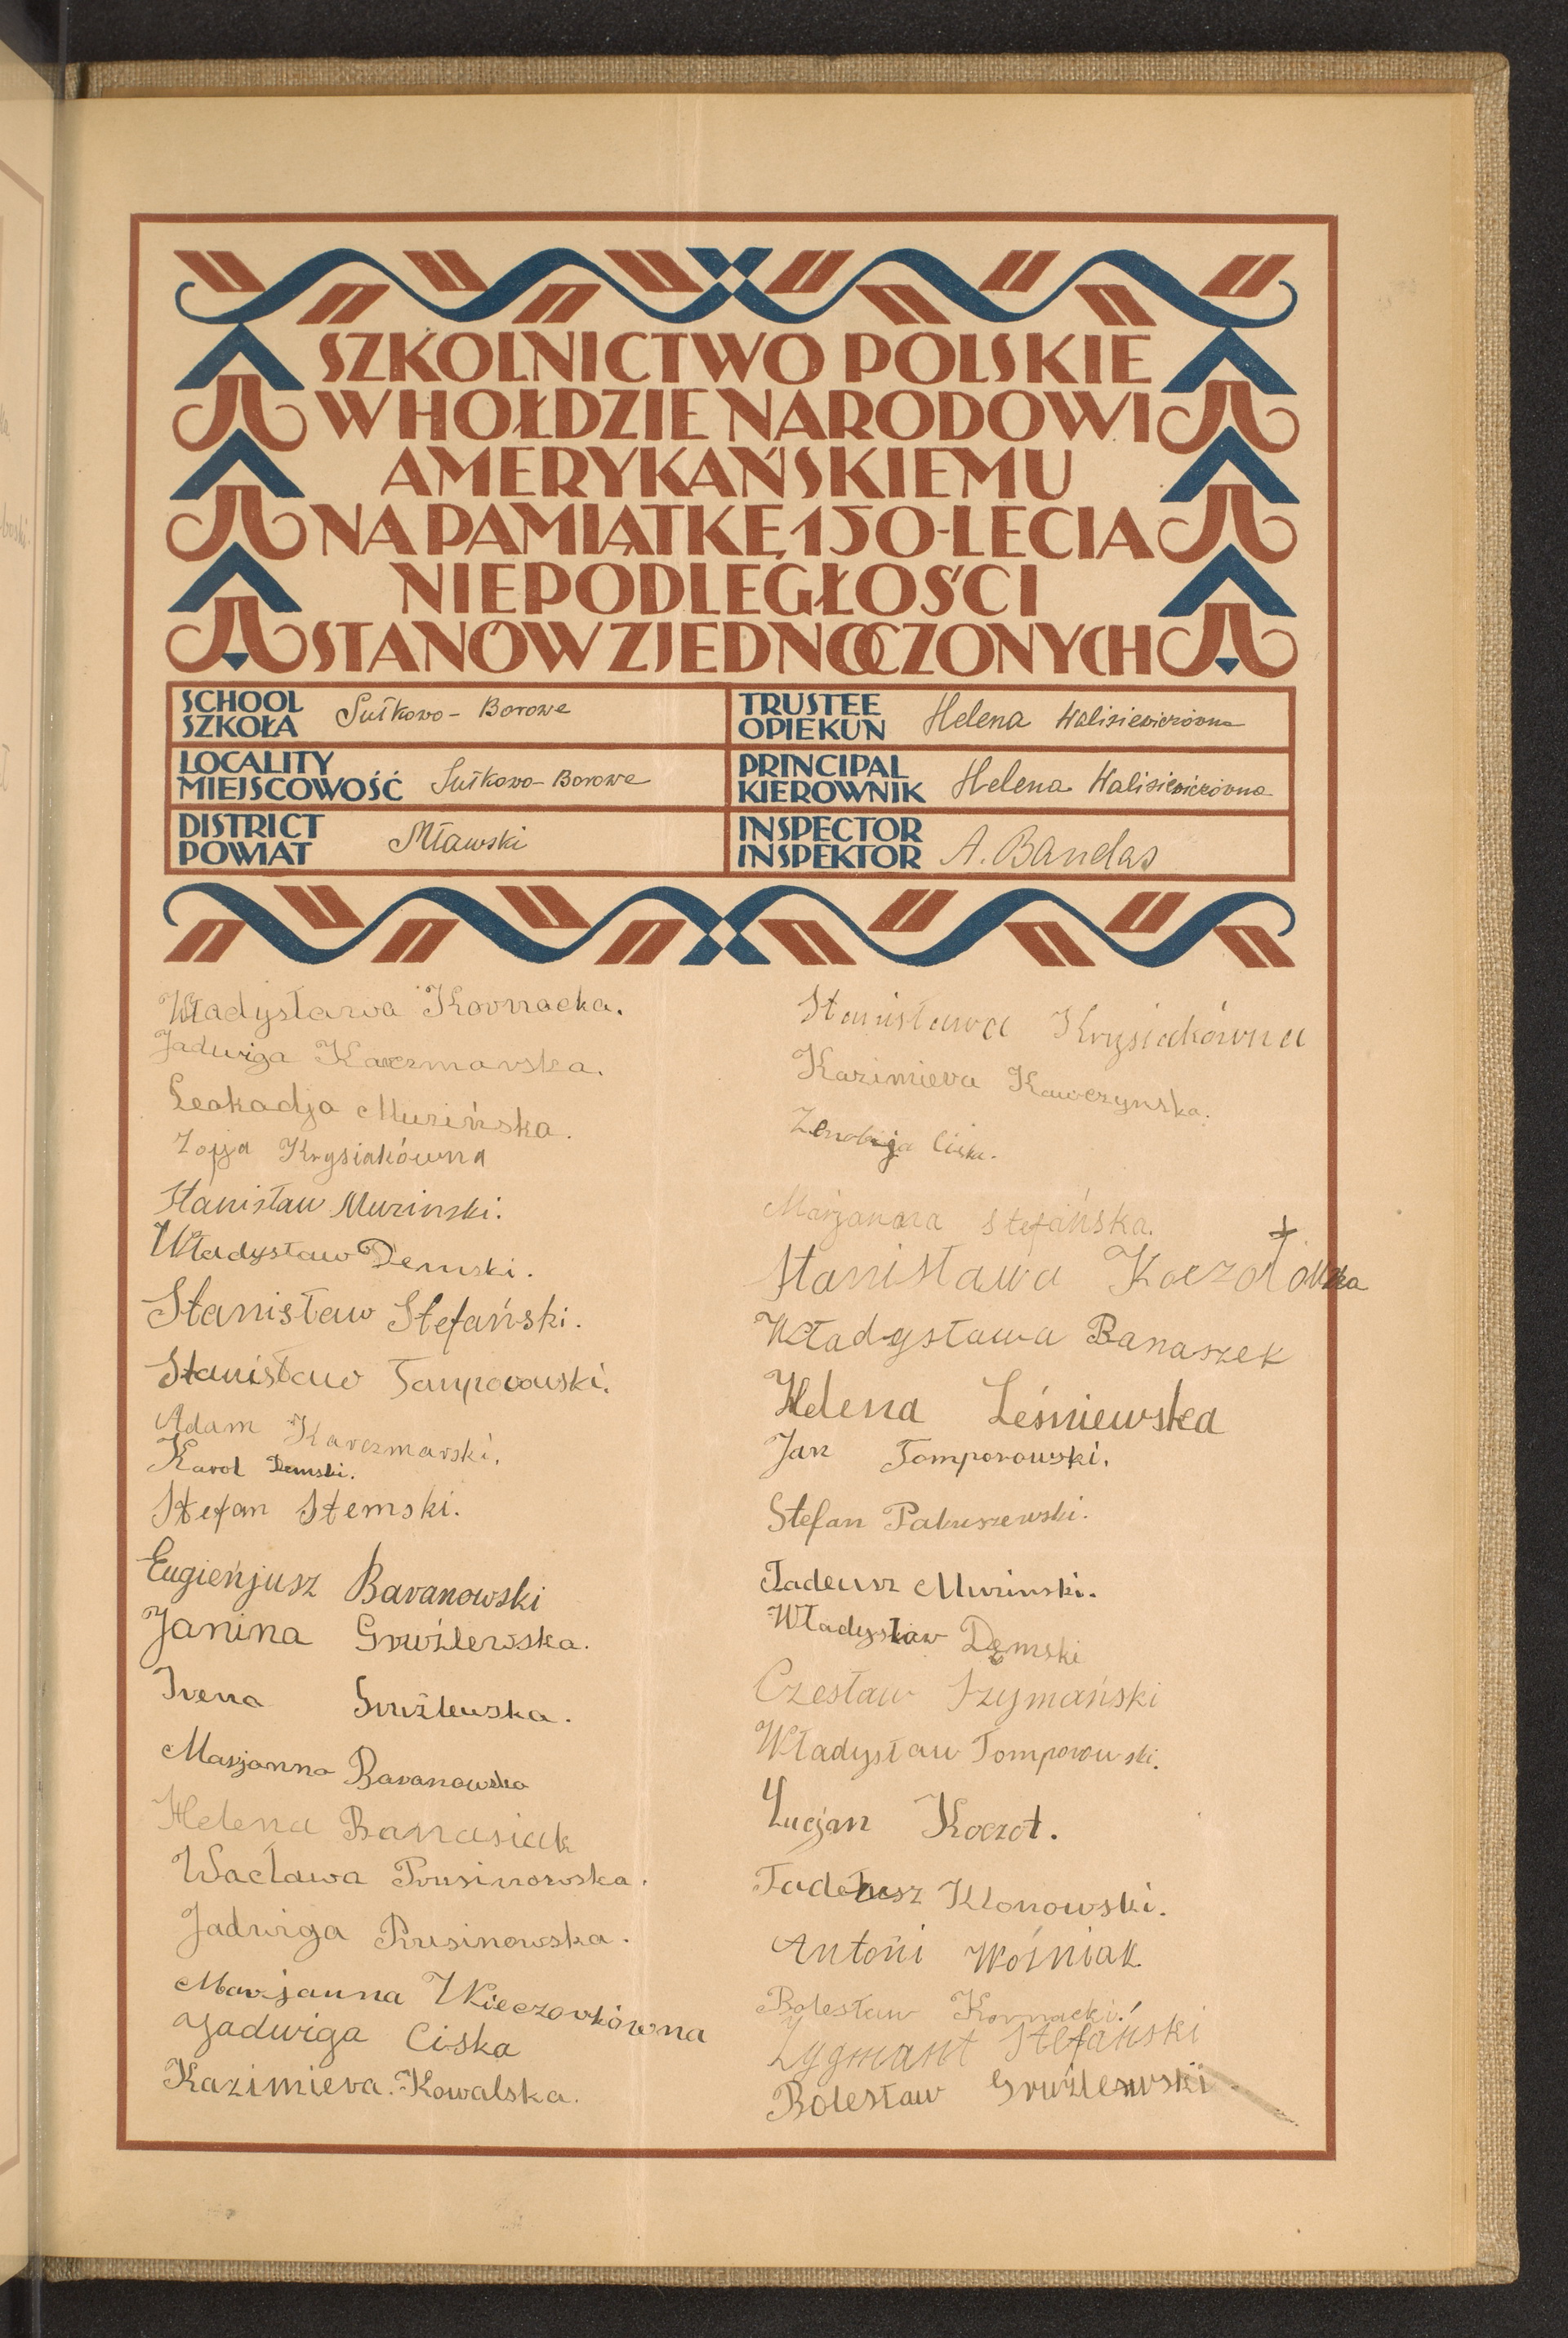 SZKOLNICTWO POLSKIE
W HOŁDZIE NARODOWI
AMERYKAŃSKIEMU
NA PAMIĄTKĘ 150-LECIA
NIEPODLEGŁOŚCI
STANÓW ZJEDNOCZONYCH
SCHOOL
SZKOŁA Sułkowo - Borowe
TRUSTEE
OPIEKUN Helena Walisiewiczówna
LOCALITY
MIEJSCOWOŚĆ Sułkowo - Borowe
PRINCIPAL
KIEROWNIK Helena Walisiewiczówna
DISTRICT
POWIAT Mławski
INSPECTOR
INSPEKTOR A. Bandas
Władysława Kornacka.
Jadwiga Kaczmarska.
Leokadja Murińska.
Zofja Krysiakówna
Stanisław Murinski.
Władysław Demski.
Stanisław Stefański.
Stanisław Tomporowski.
Adam Karczmarski.
Karol Demski.
Stefan Stemski.
Eugieńjusz Baranowski
Janina Gruźlewska.
Irena Gruźlewska.
Marjanna Baranowska
Helena Banasiak
Wacława Prusinowska.
Jadwiga Prusinowska.
Marjanna Wieczorkówna
Jadwiga Ciska
Kazimiera. Kowalska.
Stanisława Krysiakówna
Kazimiera Kawczynska.
Zenobija Ciska.
Marjanna Stefańska.
Stanisława Koczotowna
Władysława Banaszek
Helena Leśniewska
Jan Tomporowski.
Stefan Pakuszewski.
Tadeusz Murinski.
Władysław Dęmski
Czesław Szymański
Władysław Tomporowski.
Łucjan Koczot.
Tadeusz Klonowski.
Antoni Woźniak
Bolesław Kornacki.
Zygmant Stefański
Bolesław Gruźlewski